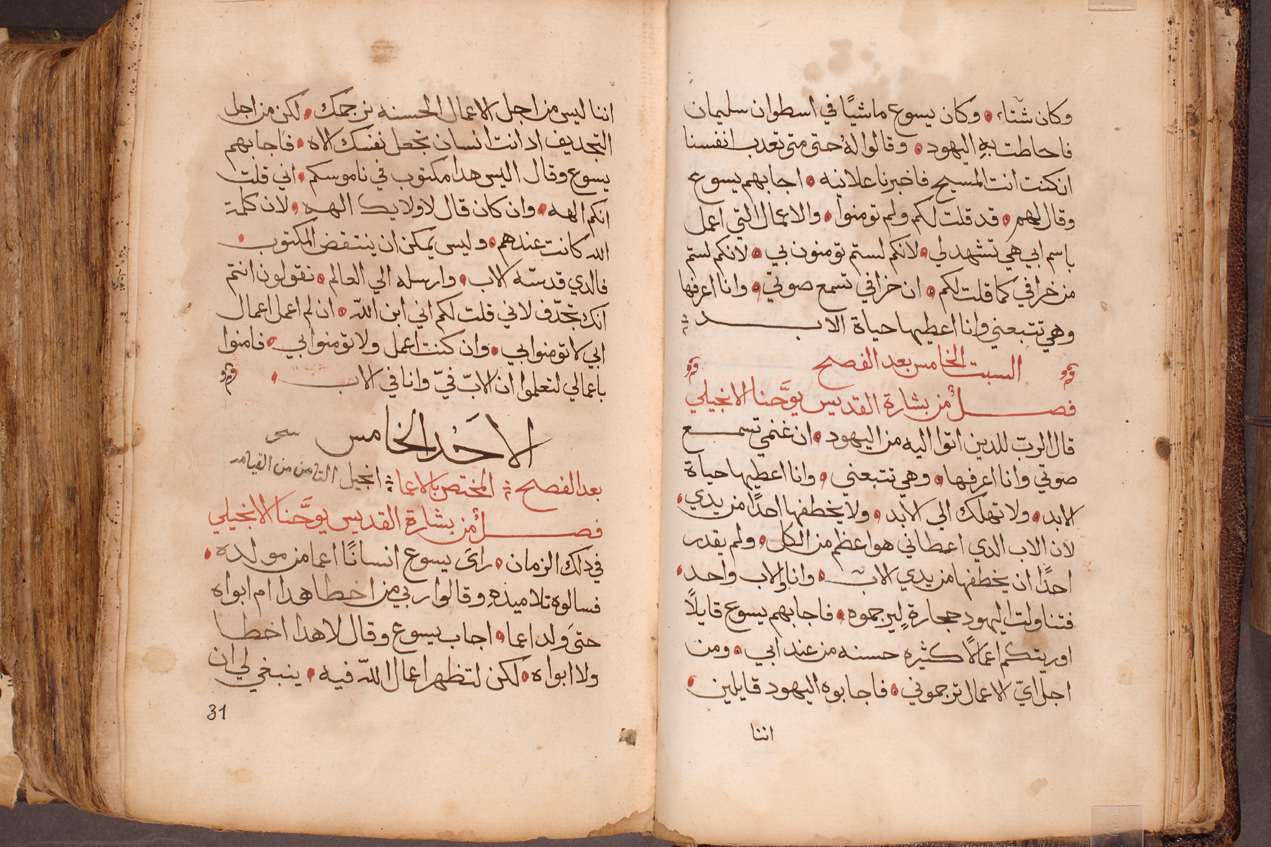 وكان شتاء ۞ وكان يسوع ماشيًا في اسطوان سليمان
فاحاطت بهِ اليهود ۞ وقالوا له حتى متى تعدب انفسنا
ان كنت انت المسيح فاخبرنا علانيه ۞ اجابهم يسوع
وقال لهم ۞ قد قلت لكم ولم تومنوا ۞ والاعمال التي اعمل
باسم ابي هي تشهد لي ۞ لانكم لستم تومنون بي ۞ لانكم لستم
من خرافي كما قلت لكم ۞ ان خرافي تسمع صوتي ۞ وانا اعرفها
وهي تتبعني وانا اعطيها حياة الابد
السبت الخامس بعد الفصح
فصل من بشارة القديس يوحَّنا الانجيلي
قال الرب للدين اتوا اليه من اليهود ۞ ان غنمي تسمع
صوتي وانا اعرفها ۞ وهي تتبعني ۞ وانا اعطيها حياة
الابد ۞ ولا تهلك الى الابد ۞ ولا يخطفها احدًا من يدي ۞
لان الاب الدي اعطاني هو اعظم من الكل ۞ ولم يقدر
احدًا ان يخطفها من يدي الاب ۞ وانا والاب واحد ۞
فتناولت اليهود حجارةٍ ليرجموه ۞ فاجابهم يسوع قايلًا
اوريتكم اعمالًا كثيره حسنه من عند ابي ۞ ومن
اجل ايّ الاعمال ترجموني ۞ فاجابوه اليهود قايلين ۞
اننا
اننا ليس من اجل الاعمال الحسنه نرجمك ۞ لكن من اجل
التجديف اد انت انسان تجعل نفسك الاه ۞ فاجابهم
يسوع وقال اليس هدا مكتوب في ناموسكم ۞ اني قلت
انكم الهه ۞ وان كان قال لاولايك الهه ۞ لان كلمة
الله كانت عندهم ۞ وليس يمكن ان ينتقض المكتوب ۞
فالدي قدسّه الاب ۞ وارسله الي العالم ۞ تقولون انتم
انك تجدّف لاني قلت لكم اني ابن اللّه ۞ ان لم اعمل اعمال
ابي لا تومنوا بي ۞ وان كنت اعمل ولا تومنوا بي ۞ فامنوا
باعمالي لتعلموا ان الابّ فيّ وانا في الاب ۞
الاحَد الخامس
بعد الفصح ۞ المختص بالاعما ۞ انجيل الثامن من القيامه
فصل من بشارة القديس يوحَّنا الانجيلي
في دلك الزمان ۞ راى يسوع انسانًا اعما من مولده ۞
فسالوه تلاميده وقالوا ربي من اخطا هدا ام ابواه
حتى وَلد اعما ۞ اجاب يسوع وقال لا هدا اخطا
ولا ابواه ۞ لكن لتظهر اعمال اللّه فيه ۞ ينبغي لي ان
31